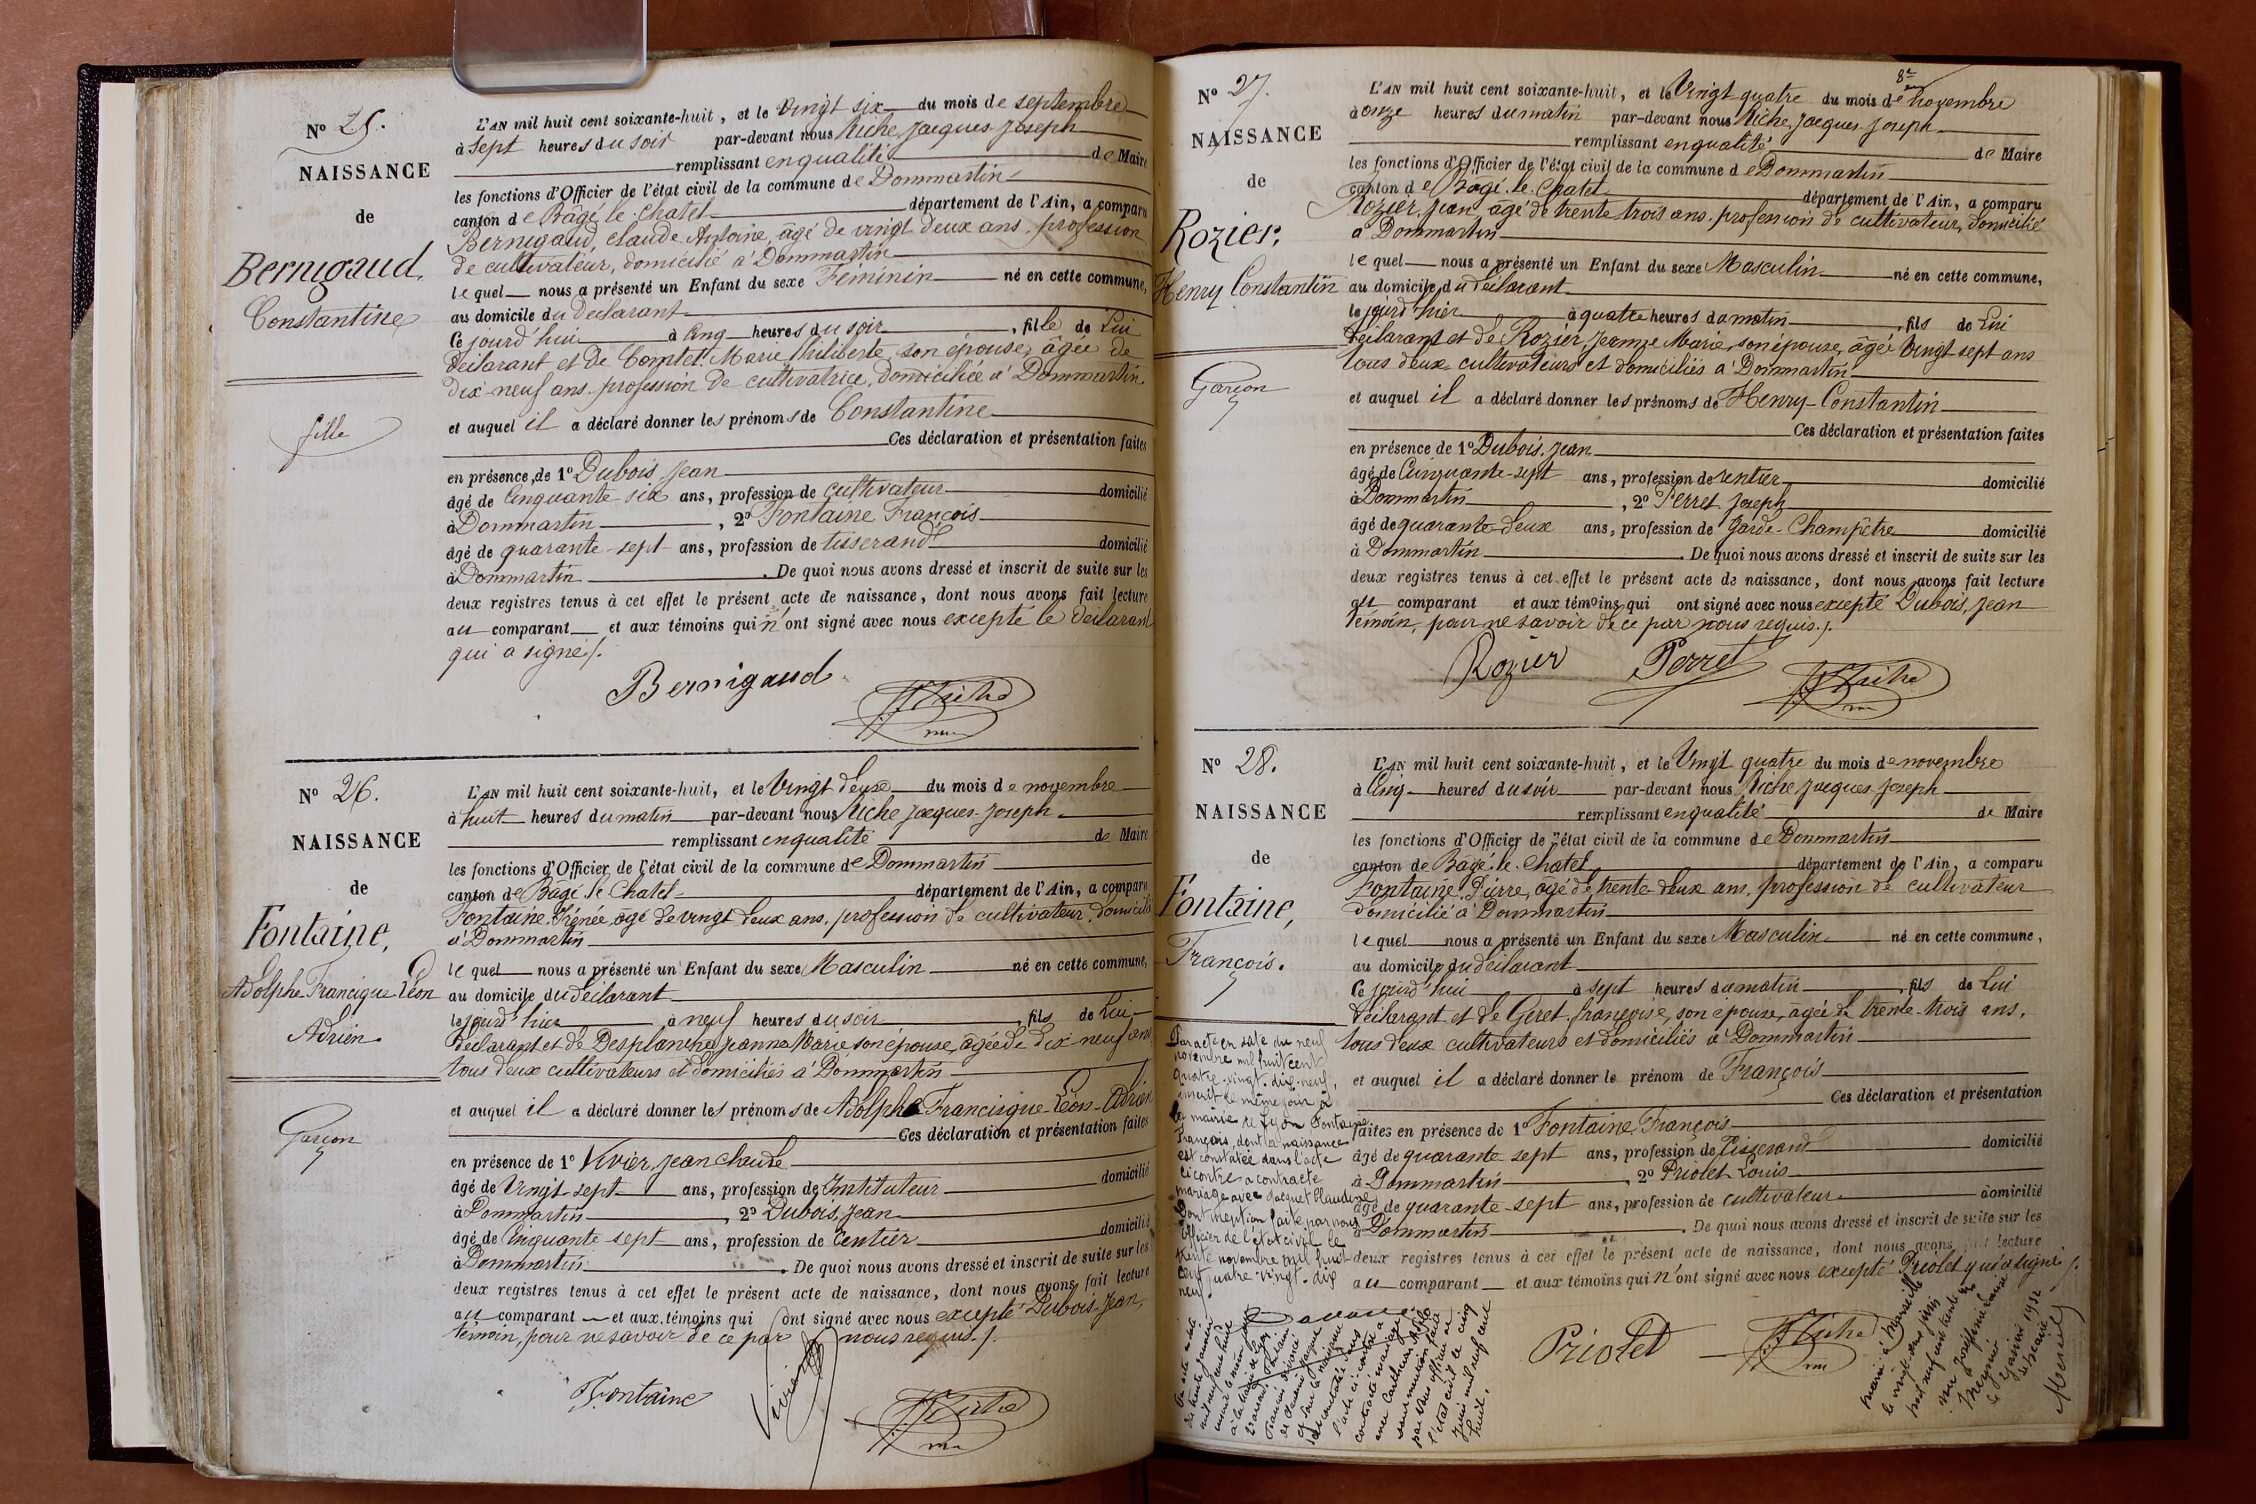 Nº 25.
NAISSANCE
de
Bernigaud,
Constantine
fille
L'AN mil huit cent soixante-huit, et le Vingt six du mois de septembre
à sept heures du soir par-devant nous Riche, Jacques Joseph
remplissant en qualité de Maire
les fonctions d'Officier de l'état civil de la commune de Dommartin
canton de Bâgé-le-Chatel département de l'Ain, a comparu
Bernigaud, Claude Antoine, âgé de vingt deux ans, profession
de cultivateur, domicilié à Dommartin
lequel nous a présenté un Enfant du sexe Féminin né en cette commune,
au domicile du déclarant
Ce jourd'hui à Cinq heures du soir, fille de Lui
déclarant et de Comtet Marie Philiberte, son épouse, âgée de
dix-neuf ans, profession de cultivatrice, domiciliée à Dommartin.
et auquel il a déclaré donner les prénoms de Constantine
Ces déclaration et présentation faites
en présence de 1º Dubois, Jean
âgé de Cinquante six ans, profession de cultivateur domicilié
à Dommartin, 2º Fontaine François
âgé de quarante-sept ans, profession de tisserand domicilié
à Dommartin. De quoi nous avons dressé et inscrit de suite sur les
deux registres tenus à cet effet le présent acte de naissance, dont nous avons fait lecture
au comparant et aux témoins qui n'ont signé avec nous excepté le déclarant
qui a signé /.
Bernigaud
JJ Riche
Nº 26.
NAISSANCE
de
Fontaine,
Adolphe Francisque Léon
Adrien.
Garçon
L'AN mil huit cent soixante-huit, et le Vingt deux du mois de novembre
à huit heures du matin par-devant nous Riche Jacques Joseph
remplissant en qualité de Maire
les fonctions d'Officier de l'état civil de la commune de Dommartin
canton de Bâgé-le-Chatel département de l'Ain, a comparu
Fontaine Irénée, âgé de vingt deux ans, profession de cultivateur, domicilié
à Dommartin
lequel nous a présenté un Enfant du sexe Masculin né en cette commune,
au domicile du déclarant
le jourd'hier à neuf heures du soir, fils de Lui
déclarant et de Desplanche, Jeanne Marie son épouse, âgée de dix-neuf ans
tous deux cultivateurs et domiciliés à Dommartin
et auquel il a déclaré donner les prénoms de Adolphe Francisque-Léon-Adrien
Ces déclaration et présentation faites
en présence de 1º Vivier, Jean Claude
âgé de Vingt-sept ans, profession de Instituteur domicilié
à Dommartin, 2º Dubois, Jean
âgé de Cinquante sept ans, profession de rentier domicilié
à Dommartin. De quoi nous avons dressé et inscrit de suite sur les
deux registres tenus à cet effet le présent acte de naissance, dont nous avons fait lecture
au comparant et aux témoins qui ont signé avec nous excepté Dubois, Jean,
témoin, pour ne savoir de ce par nous requis /.
Fontaine
Vivier
JJ Riche
Nº 27.
NAISSANCE
de
Rozier,
Henry Constantin
Garçon
L'AN mil huit cent soixante-huit, et le Vingt quatre du mois de novembre
à onze heures du matin par-devant nous Riche, Jacques Joseph
remplissant en qualité de Maire
les fonctions d'Officier de l'état civil de la commune de Dommartin
canton de Bagé-le-Chatel département de l'Ain, a comparu
Rozier, Jean âgé de trente trois ans, profession de cultivateur, domicilié
à Dommartin
lequel nous a présenté un Enfant du sexe Masculin né en cette commune,
au domicile du déclarant
le jourd'hier à quatre heures du matin, fils de Lui
déclarant et de Rozier, Jeanne Marie, son épouse, âgée Vingt sept ans
tous deux cultivateurs et domiciliés à Dommartin
et auquel il a déclaré donner les prénoms de Henry-Constantin
Ces déclaration et présentation faites
en présence de 1º Dubois, Jean
âgé de Cinquante-sept ans, profession de rentier domicilié
à Dommartin, 2º Perret Joseph
âgé de quarante-deux ans, profession de Garde-Champêtre domicilié
à Dommartin. De quoi nous avons dressé et inscrit de suite sur les
deux registres tenus à cet effet le présent acte de naissance, dont nous avons fait lecture
au comparant et aux témoins qui ont signé avec nous excepté Dubois, Jean
témoin, pour ne savoir de ce par nous requis /.
Rozier Perret JJ Riche
Nº 28.
NAISSANCE
de
Fontaine,
François.
L'AN mil huit cent soixante-huit, et le Vingt quatre du mois de novembre
à Cinq heures du soir par-devant nous Riche Jacques Joseph
remplissant en qualité de Maire
les fonctions d'Officier de l'état civil de la commune de Dommartin
canton de Bâgé-le-Chatel département de l'Ain, a comparu
Fontaine Pierre, âgé de trente deux ans, profession de cultivateur
domicilié à Dommartin
lequel nous a présenté un Enfant du sexe Masculin né en cette commune,
au domicile du déclarant
Ce jourd'hui à sept heures du matin, fils de Lui
déclarant et de Geret, françoise, son épouse, âgée de trente-trois ans,
tous deux cultivateurs et domiciliés à Dommartin
et auquel il a déclaré donner le prénom de François
Ces déclaration et présentation
faites en présence de 1º Fontaine, François
âgé de quarante sept ans, profession de tisserand domicilié
à Dommartin, 2º Priolet Louis
âgé de quarante-sept ans, profession de cultivateur domicilié
à Dommartin. De quoi nous avons dressé et inscrit de suite sur les
deux registres tenus à cet effet le présent acte de naissance, dont nous avons fait lecture
au comparant et aux témoins qui n'ont signé avec nous excepté Priolet qui a signé /.
Priolet
JJ Riche
Par acte en date du neuf
novembre mil huit cent
quatre-vingt-dix-neuf,
inscrit le même jour à
la mairie de Lyon Fontaine
François, dont la naissance
est constatée dans l'acte
ci contre a contracté
mariage avec Jacquet Claudine
Dont mention faite par nous
officier de l'état civil le
trente novembre mil huit
cent quatre-vingt-dix
neuf.
l'acte ci contre a
contracté mariage
par nous officier de
l'état civil le cinq
juin mil neuf cent
huit.
Marié à Marseille